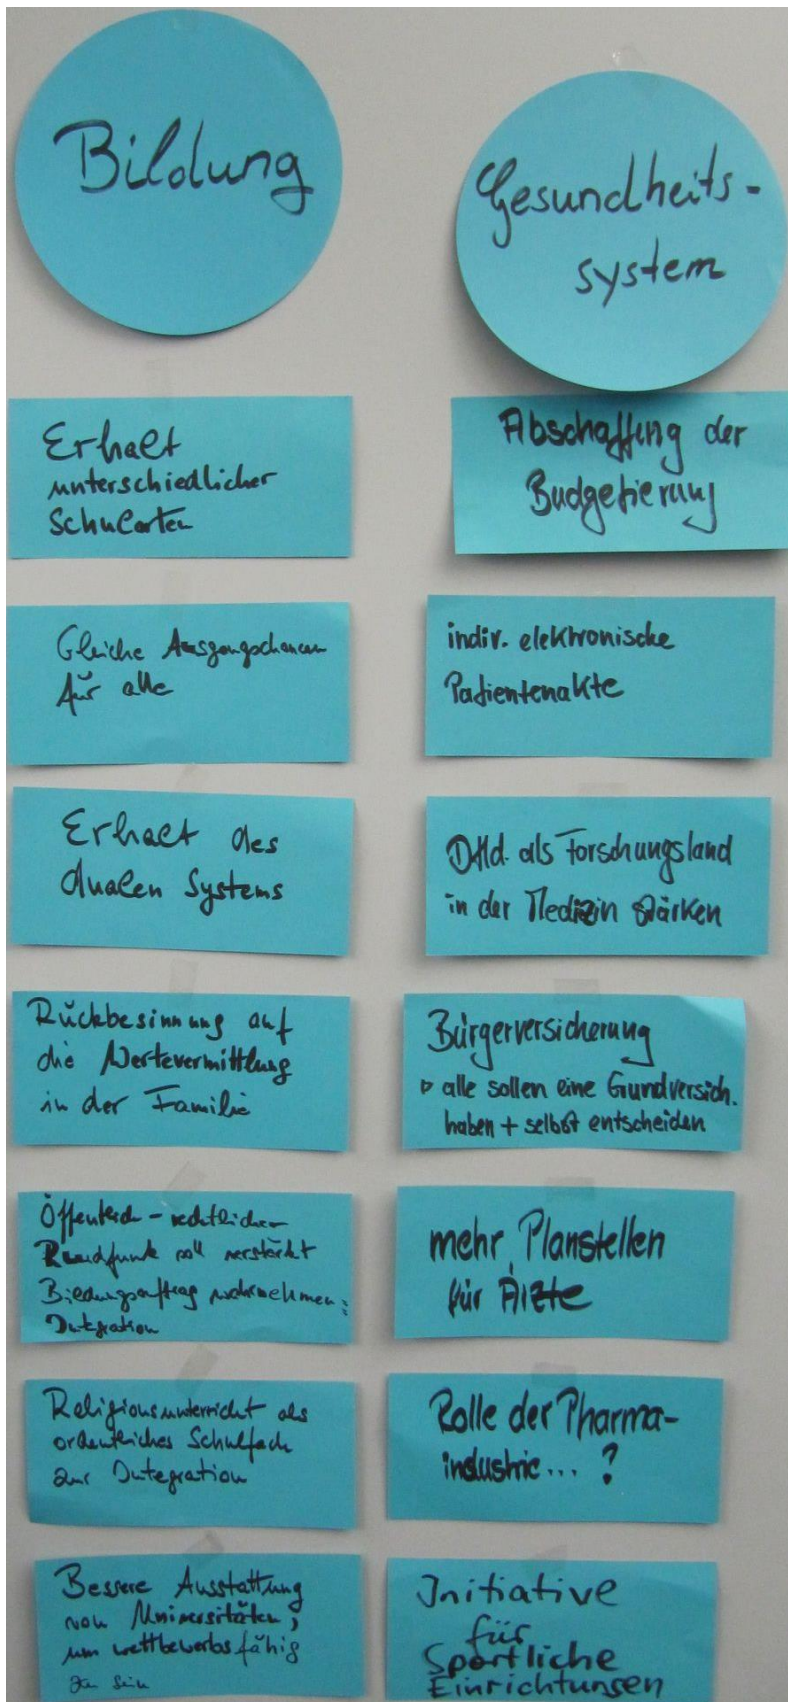 Bildung
Erhalt
unterschiedlicher
Schularten
Gleiche Ausgangschancen
für alle
Erhalt des
dualen Systems
Rückbesinnung auf
die Wertevermittlung
in der Familie
Öffentlich-rechtlicher
Rundfunk soll verstärkt
Bildungsauftrag wahrnehmen:
Integration
Religionsunterricht als
ordentliches Schulfach
zur Integration
Bessere Ausstattung
von Universitäten,
um wettbewerbsfähig
zu sein
Gesundheits-
system
Abschaffung der
Budgetierung
indiv. elektronische
Patientenakte
Dtld. als Forschungsland
in der Medizin stärken
Bürgerversicherung
▷ alle sollen eine Grundversich.
haben + selbst entscheiden
mehr Planstellen
für Ärzte
Rolle der Pharma-
industrie... ?
Initiative
für
Sportliche
Einrichtungen